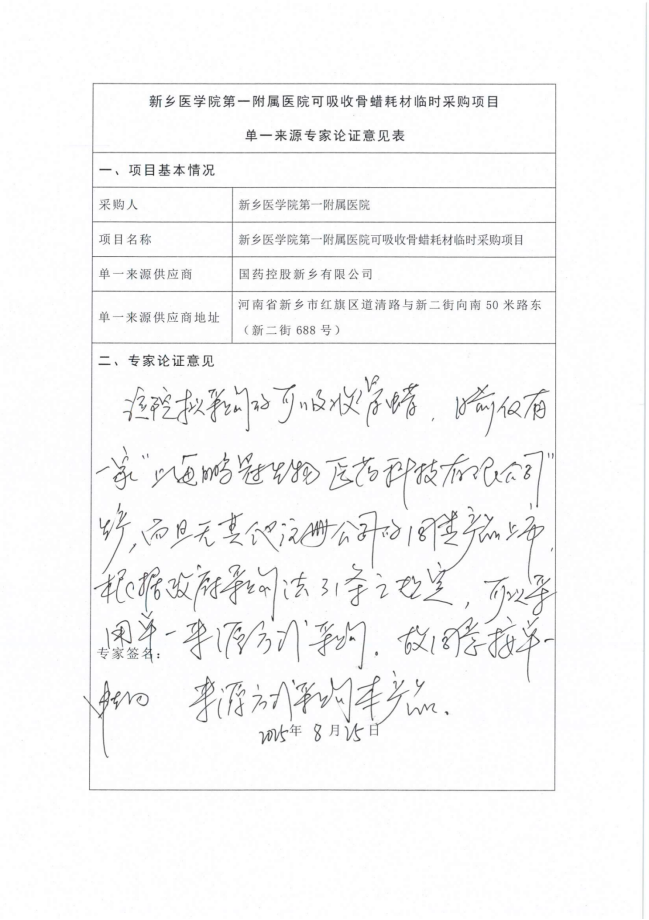 新乡医学院第一附属医院可吸收骨蜡耗材临时采购项目
单一来源专家论证意见表
一、项目基本情况
采购人 新乡医学院第一附属医院
项目名称 新乡医学院第一附属医院可吸收骨蜡耗材临时采购项目
单一来源供应商 国药控股新乡有限公司
单一来源供应商地址 河南省新乡市红旗区道清路与新二街向南 50 米路东
（新二街 688 号）
二、专家论证意见
该院拟采购的可吸收骨蜡，目前仅有
一家“上海鹏冠生物医药科技有限公司”
生产，而且无其他注册公司的同类产品上市，
根据政府采购法31条之规定，可以采
用单一来源方式采购。故同意按单一
来源方式采购本产品。
专家签名：
2025年 8 月 25 日